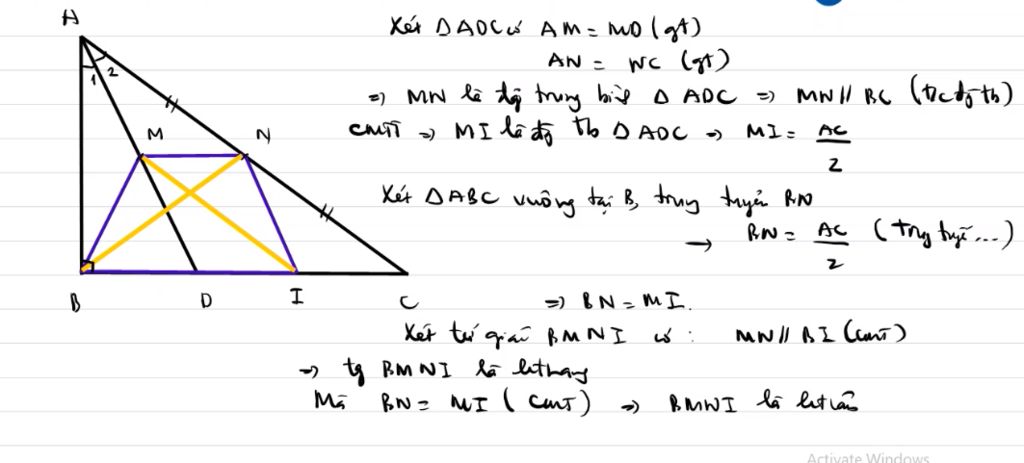 A
Xét ΔADC có AM = MD (gt)
1 2
AN = NC (gt)
=> MN là đg trung bình Δ ADC => MN // BC (t/c đg tb)
M N
CMTT => MI là đg tb ΔADC => MI = AC/2
Xét ΔABC vuông tại B, trung tuyến BN
→ BN = AC/2 (trung tuyến ...)
B D I C
=> BN = MI.
Xét tứ giác BMNI có : MN // BI (cmt)
=> tg BMNI là hthang
Mà BN = MI (cmt) => BMNI là htcân
Activate Windows